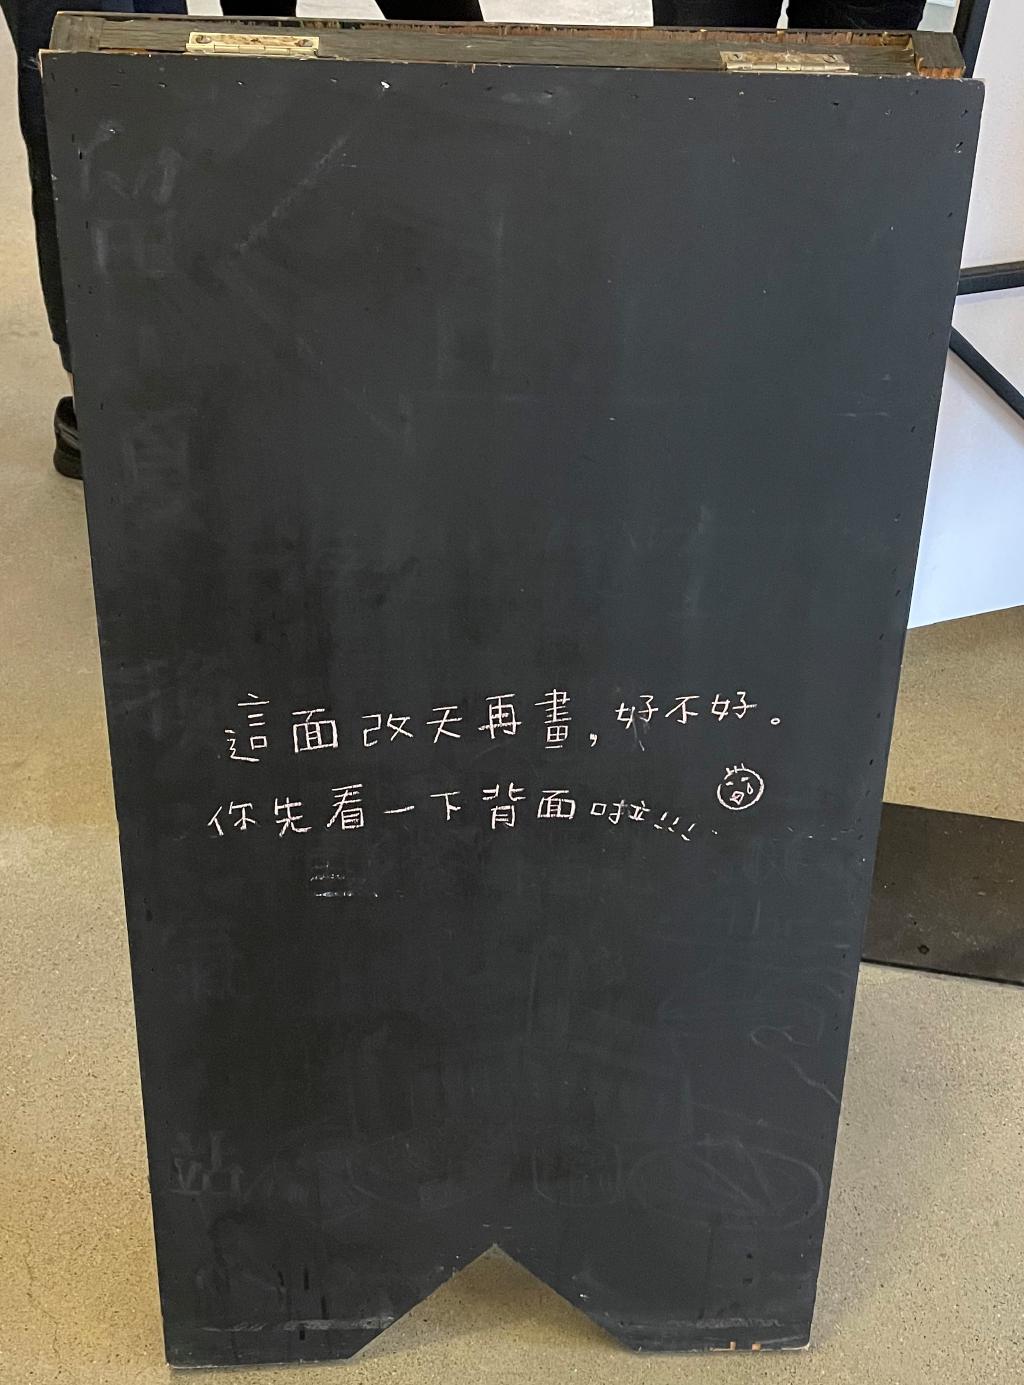 這面改天再畫，好不好。
你先看一下背面啦!!!